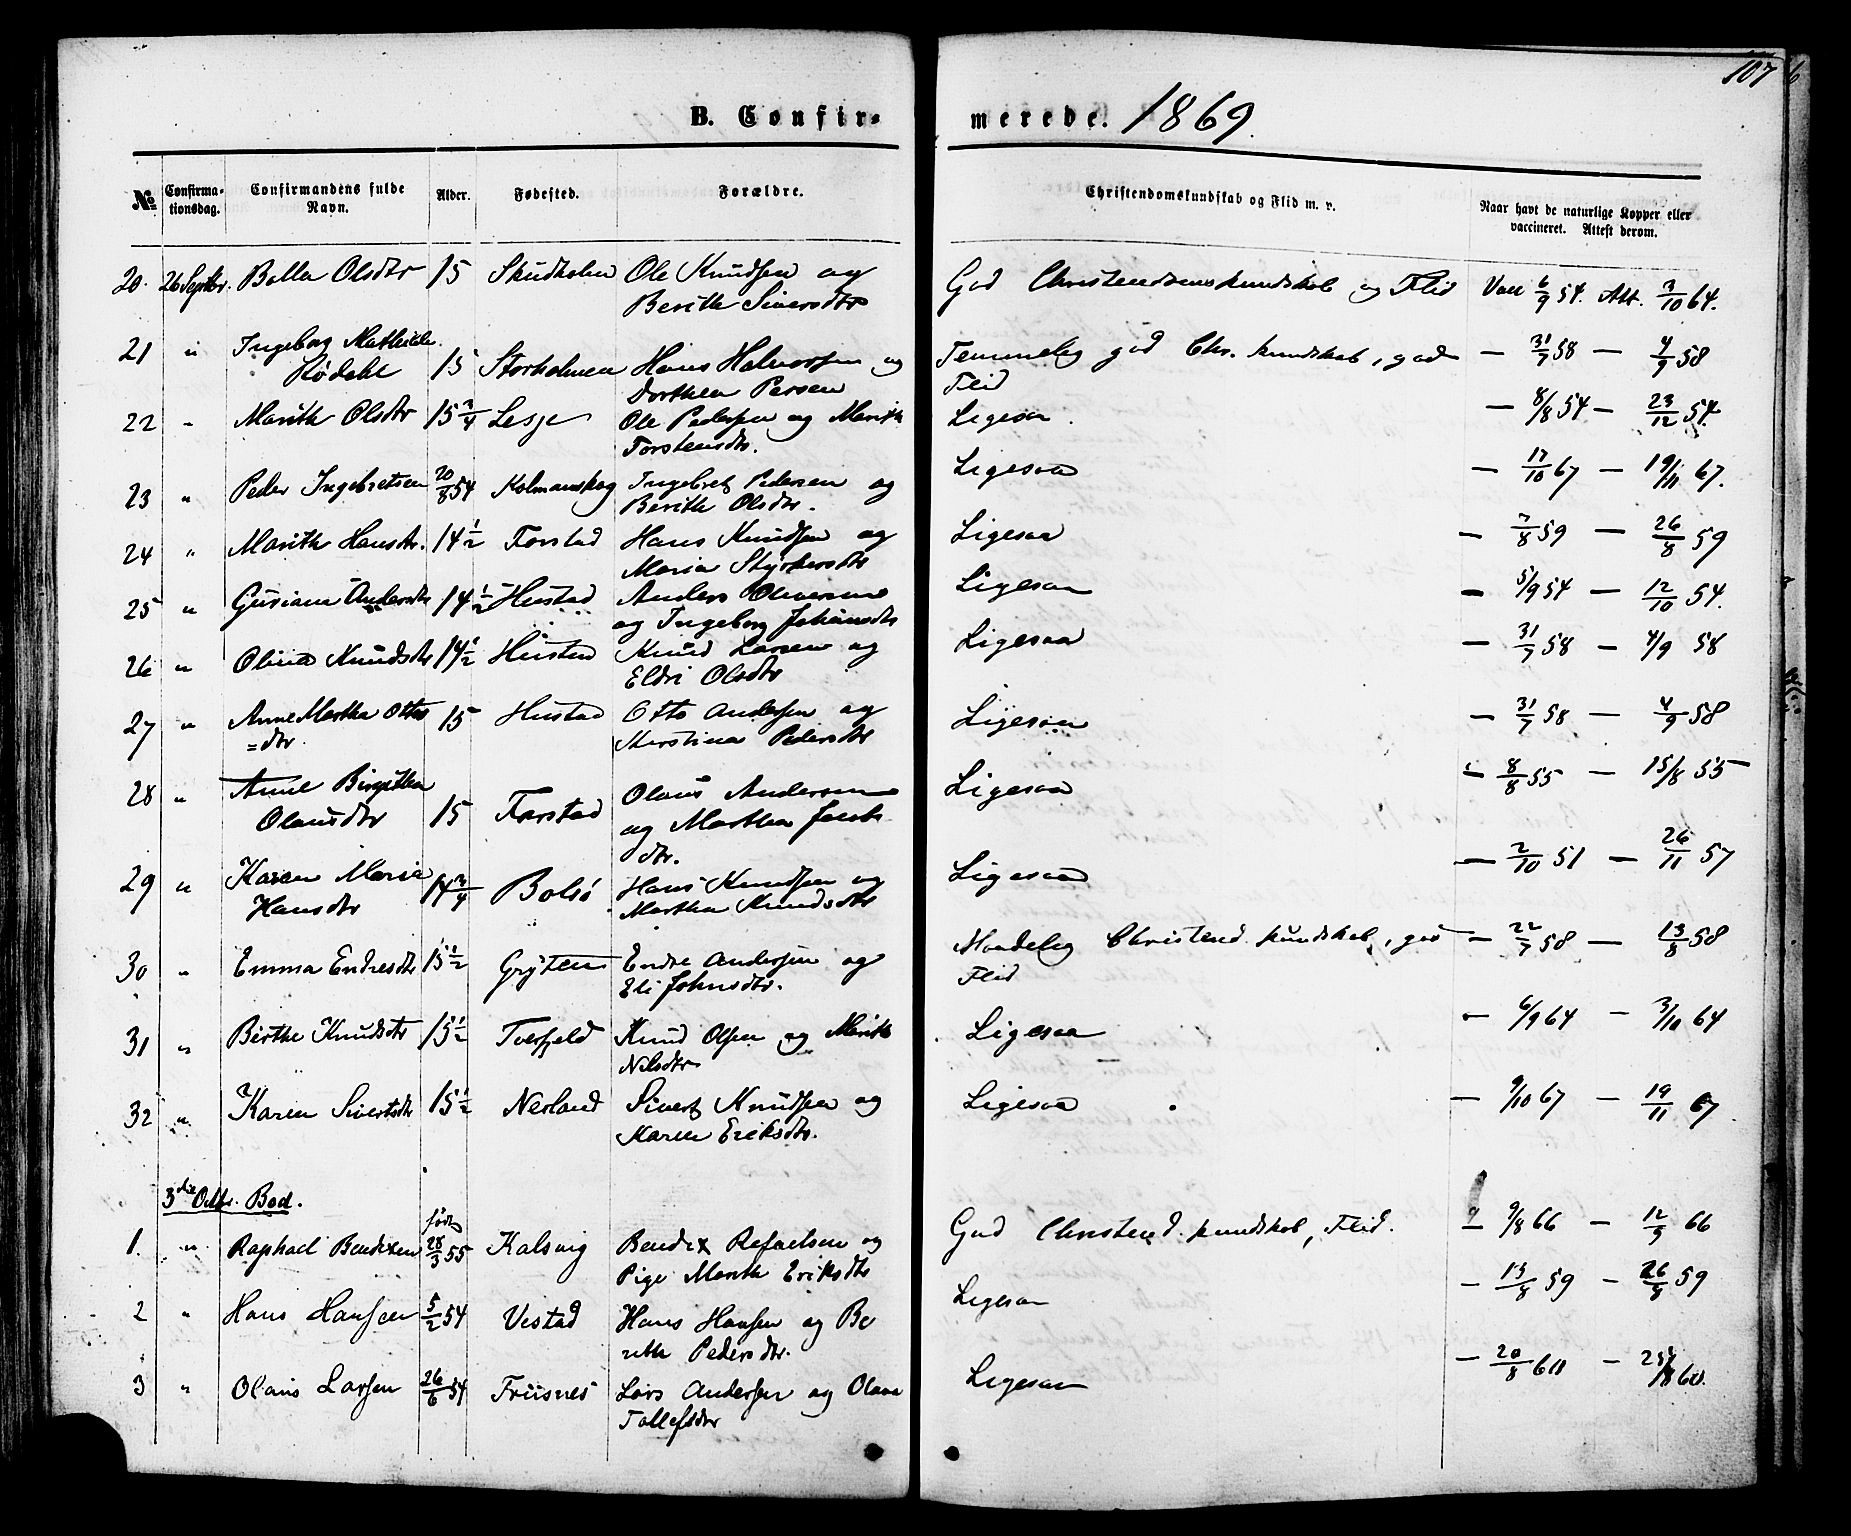 107
B. Confir-merede. 1869.
No Confirmationsdag. Confirmandens fulde Navn. Alder. Fødested. Forældre. Christendomskundskab og Flid m. v. Naar havt de naturlige Kopper eller vaccineret. Attest derom.
20. 26 Septbr. Olsdtr 15 Skudholm Ole Knudsen og God Christendomskundskab og Flid Vacc 6/9 54. Att. 3/10 64.
Berith Siversdtr
21 " Ingeborg Mathilde 15 Storholmen Hans Halvorsen og Temmelig god Chr. kundskab, god — 31/7 58 — 4/9 58
Dorthea Persen Flid
22 " Marith Olsdtr 15 3/4 Lesje Ole Pedersen og Marith Ligesaa. — 8/8 54 — 23/12 54.
Torstensdtr.
23 " Peder Ingebretsen 20/8 54 Kolmanskog Ingebret Pedersen og Ligesaa — 17/10 67 — 19/11 67.
Berith Olsdtr.
24 " Marith Hansdtr. 14 1/2 Forstad Hans Knudsen og Ligesaa — 7/8 59 — 26/8 59
Maria
25 " Guriana Andersdtr 14 1/2 Hustad Anders Oliversen Ligesaa — 5/9 54 — 12/10 54.
og Ingeborg Johansdtr
26 " Olina Knudsdtr 14 1/2 Hustad Knud Larsen og Ligesaa — 31/7 58 — 4/9 58
Eldri Olsdtr
27 " Anne Martha Otters 15 Hustad Otto Andersen og Ligesaa — 31/7 58 — 4/9 58
=dtr Kerstina Pedersdtr
28 " Anne Birgitha Olaus Andersen Ligesaa — 8/8 55 — 15/8 55
Olausdtr 15 Farstad og Martha Jacobs
dtr.
29 " Karen Maria 14 3/4 Bolsø Hans Knudsen og Ligesaa — 2/10 51 — 26/11 57
Hansdtr Martha Knudsdtr
30 " Emma Endresdtr 15 1/2 Grytten Endre Andersen og Maadelig Christend. kundskab, god — 22/7 58 — 13/8 58
Eli Johnsdtr. Flid
31 " Birthe Knudsdtr 15 1/2 Tverfjeld Knud Olsen og Marith Ligesaa — 6/9 64 — 3/10 64
Nilsdtr
32 " Karen Sivertsdtr 15 1/2 Nerland Sivert Knudsen og Ligesaa — 9/10 67 — 19/11 67
Karen Eriksdtr.
3die Octbr. Bod.
født
1. " Raphael Bendixen 28/3 55 Kalsvig Bendix Refaelsen og God Christend. kundskab, Flid. — 9/8 66 — 12/9 66
Pige Marith Eriksdtr
2 " Hans Hansen 5/2 54 Vestad Hans Hansen og Be Ligesaa — 13/8 59 — 26/8 59
rith Pedersdtr.
3 " Olaus Larsen 26/6 54 Friisnes Lars Andersen og Olava Ligesaa — 20/8 60
Tollefsdtr